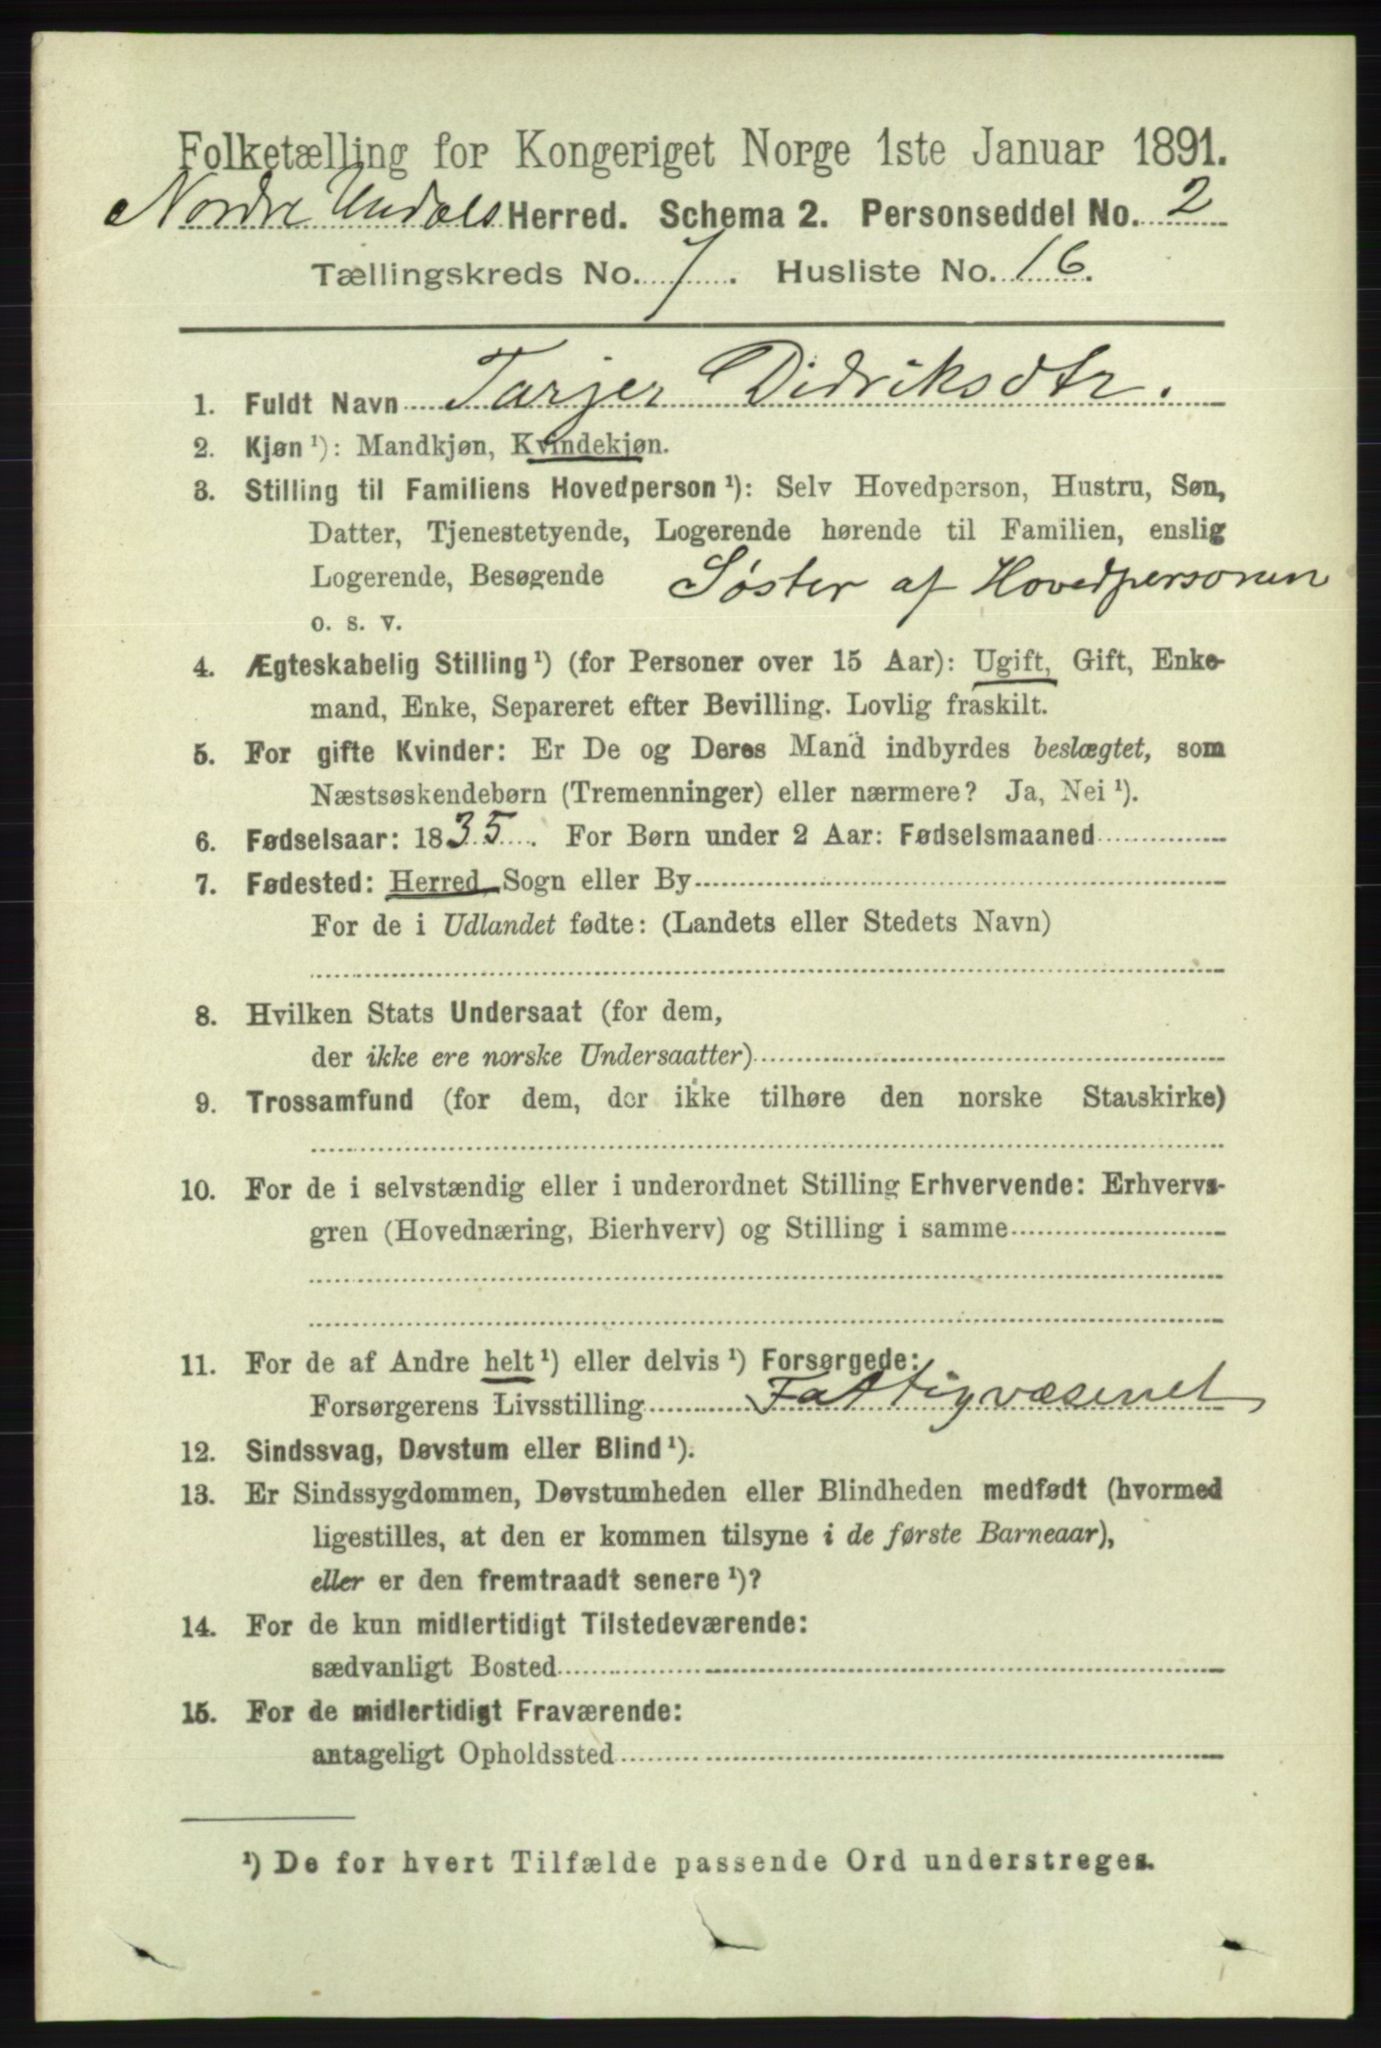 Folketælling for Kongeriget Norge 1ste Januar 1891.
Nordre Undals Herred. Schema 2. Personseddel No. 2
Tællingskreds No. 7. Husliste No. 16.
1. Fuldt Navn Tarjer Didriksdtr.
2. Kjøn¹): Mandkjøn, Kvindekjøn.
3. Stilling til Familiens Hovedperson¹): Selv Hovedperson, Hustru, Søn,
Datter, Tjenestetyende, Logerende hørende til Familien, enslig
Logerende, Besøgende Søster af Hovedpersonen
o. s. v.
4. Ægteskabelig Stilling¹) (for Personer over 15 Aar): Ugift, Gift, Enke-
mand, Enke, Separeret efter Bevilling. Lovlig fraskilt.
5. For gifte Kvinder: Er De og Deres Mand indbyrdes beslægtet, som
Næstsøskendebørn (Tremenninger) eller nærmere? Ja, Nei¹).
6. Fødselsaar: 1835. For Børn under 2 Aar: Fødselsmaaned
7. Fødested: Herred, Sogn eller By
For de i Udlandet fødte: (Landets eller Stedets Navn)
8. Hvilken Stats Undersaat (for dem,
der ikke ere norske Undersaatter)
9. Trossamfund (for dem, der ikke tilhøre den norske Statskirke)
10. For de i selvstændig eller i underordnet Stilling Erhvervende: Erhvervs-
gren (Hovednæring, Bierhverv) og Stilling i samme
11. For de af Andre helt¹) eller delvis¹) Forsørgede:
Forsørgerens Livsstilling Fattigvæsenet
12. Sindssvag, Døvstum eller Blind¹).
13. Er Sindssygdommen, Døvstumheden eller Blindheden medfødt (hvormed
ligestilles, at den er kommen tilsyne i de første Barneaar),
eller er den fremtraadt senere¹)?
14. For de kun midlertidigt Tilstedeværende:
sædvanligt Bosted
15. For de midlertidigt Fraværende:
antageligt Opholdssted
¹) De for hvert Tilfælde passende Ord understreges.